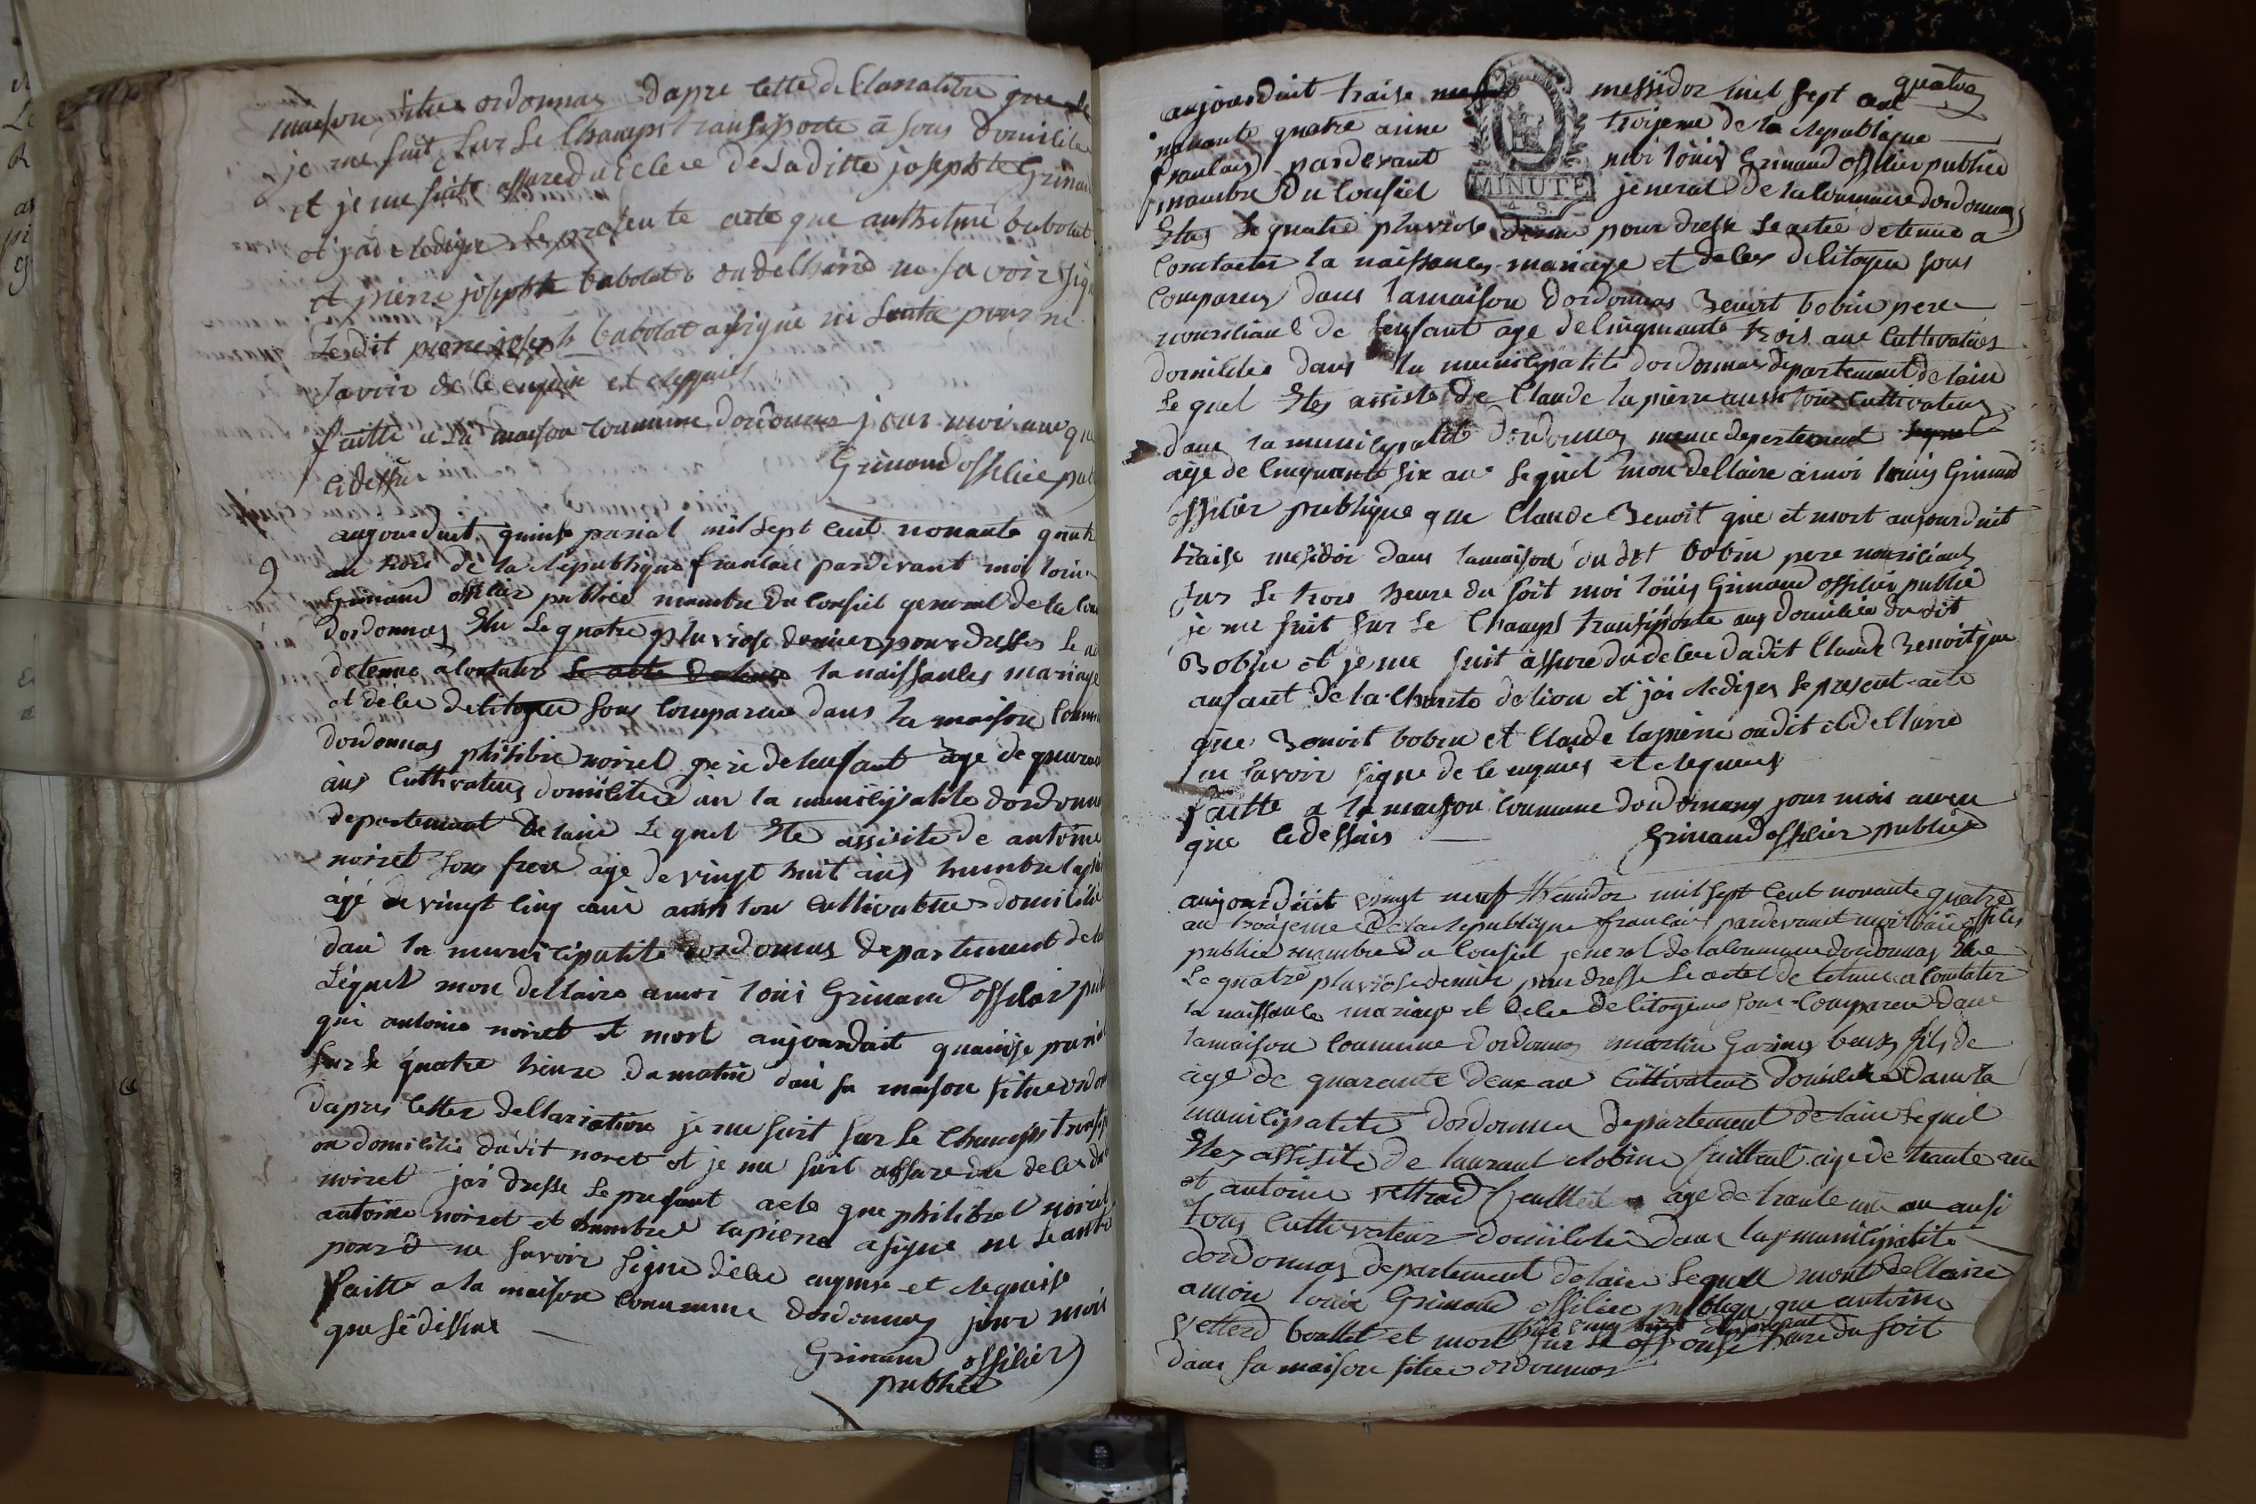 maison situe ordonnas dapre cette desclaratione que le
je me suit sur le champs transsporte a sons domicile
et je me suite assure du decee de laditte josephte Grinan
et jai redige le presente acte que anthelme babolat
et pierre josepht babolat on declaire ne savoir sign
Ledit pierre joseph babolat a signe ni lautre pour ne
savoir de ce enquis et requis
faitte a la maison commune dordonnas jour mois anne que
cidessus
Grinand officier publ
aujourduit quinse prerial mil sept cent nonante quatr
an trois de la republique francais pardevant moi loui
Grinand officier publice mambre du conseil general de la com
dordonnas Elu le quatre pluviose denier pour dresser le ac
detenne a contater la naissances mariage
et decee decitoyen sons comparue dans la maison commu
dordonnas philibre noiret pere delenfant age de quaran
ans cultivateur domicilie dan la municipalite dordonn
departemant de lain Le quel Ete assiste de antoine
noiret sons frere age de vingt huit ans humbre lapie
age de vingt cinq ans aussi tou cultivateur domicilie
dans la municipalite dordonnas departement de la
Lequel mon dellaire a moi loui Grinand officier pub
que antoine noiret et mort aujourduit quinse prerial
sur le quatre heure du matin dans sa maison situe ordon
dapres cetter dellaration je me suit sur le champs transp
au domicilie dudit noiret et je me suit assure du decee du
noiret jai dresse le presant acte que philibret noiret
antoine noiret et humbre lapierre a signe ne le autre
pour ne savoir signe de ce enquise et requise
faitte a la maison commune dordonnas jour mois
que sedissue
Grinand officier
publice
quatre
aujourduit traise messidor mil sept cent
nonante quatre anne troijeme de la republique
francais pardevant moi louis Grinand officier publice
mambre du conseil jeneral de la commune dordonnas
MINUTE
4 S.
Elus le quatre pluviose denier pour dresse le actee detenne a
contater la naissances mariage et decee decitoyen sous
comparus dans lamaison dordonnas Benoit bobin pere
nouriciant de lenfant age de cinquante trois ans cultivateur
domicilie dans la municipalite dordonnas departement de lain
Le quel Etes assiste de Claude lapierre aussi tous cultivateur
dans la municipalite dordonnas meme departement
age de cinquante six ans lequel mon dellaire a moi louis Grinand
officier publique que Claude Benoit que et mort aujourduit
traise mesidor dans lamaison du dit bobin pere nouriciant
sur le trois heure du soit moi louis Grinand officier publice
je me suit sur le champs transsporte aus domicilie du dit
Bobin et je me suit assure du decee dudit Claude Benoit que
anfant de la charite de lion et jai rediger le present acte
que Benoit bobin et Claude lapierre on dit et dellaire
ne savoir signe de ce enquies et requies
faitte a la maison commune dordonnas jour mois annee
que cidessus
Grinand officier publice
aujourduit vingt neuf thermidor mil sept cent nonante quatre
an troijeme de la republique francais pardevant moi louis officier
publice mambre du conseil jeneral de la commune dordonnas Elue
Le quatre pluviose denier pour dresse le actee de tenne a contater
la naissance mariage et decee de citoyens sous comparue dans
lamaison commune dordonnas martin fils de
age de quarante deux ans cultivateur domicilie dans la
municipalite dordonnas departement de lain lequel
Etes assiste de laurant robin age de trante ans
et antoine age de trante un an ausi
tous cultivateur domicilie dans la municipalite
dordonnas departement de lain lequell mont dellaire
a moi louis Grinand officier publique que antoine
vetterd boullet et mort sur le onse heure du soit
dans sa maison situe ordonnas